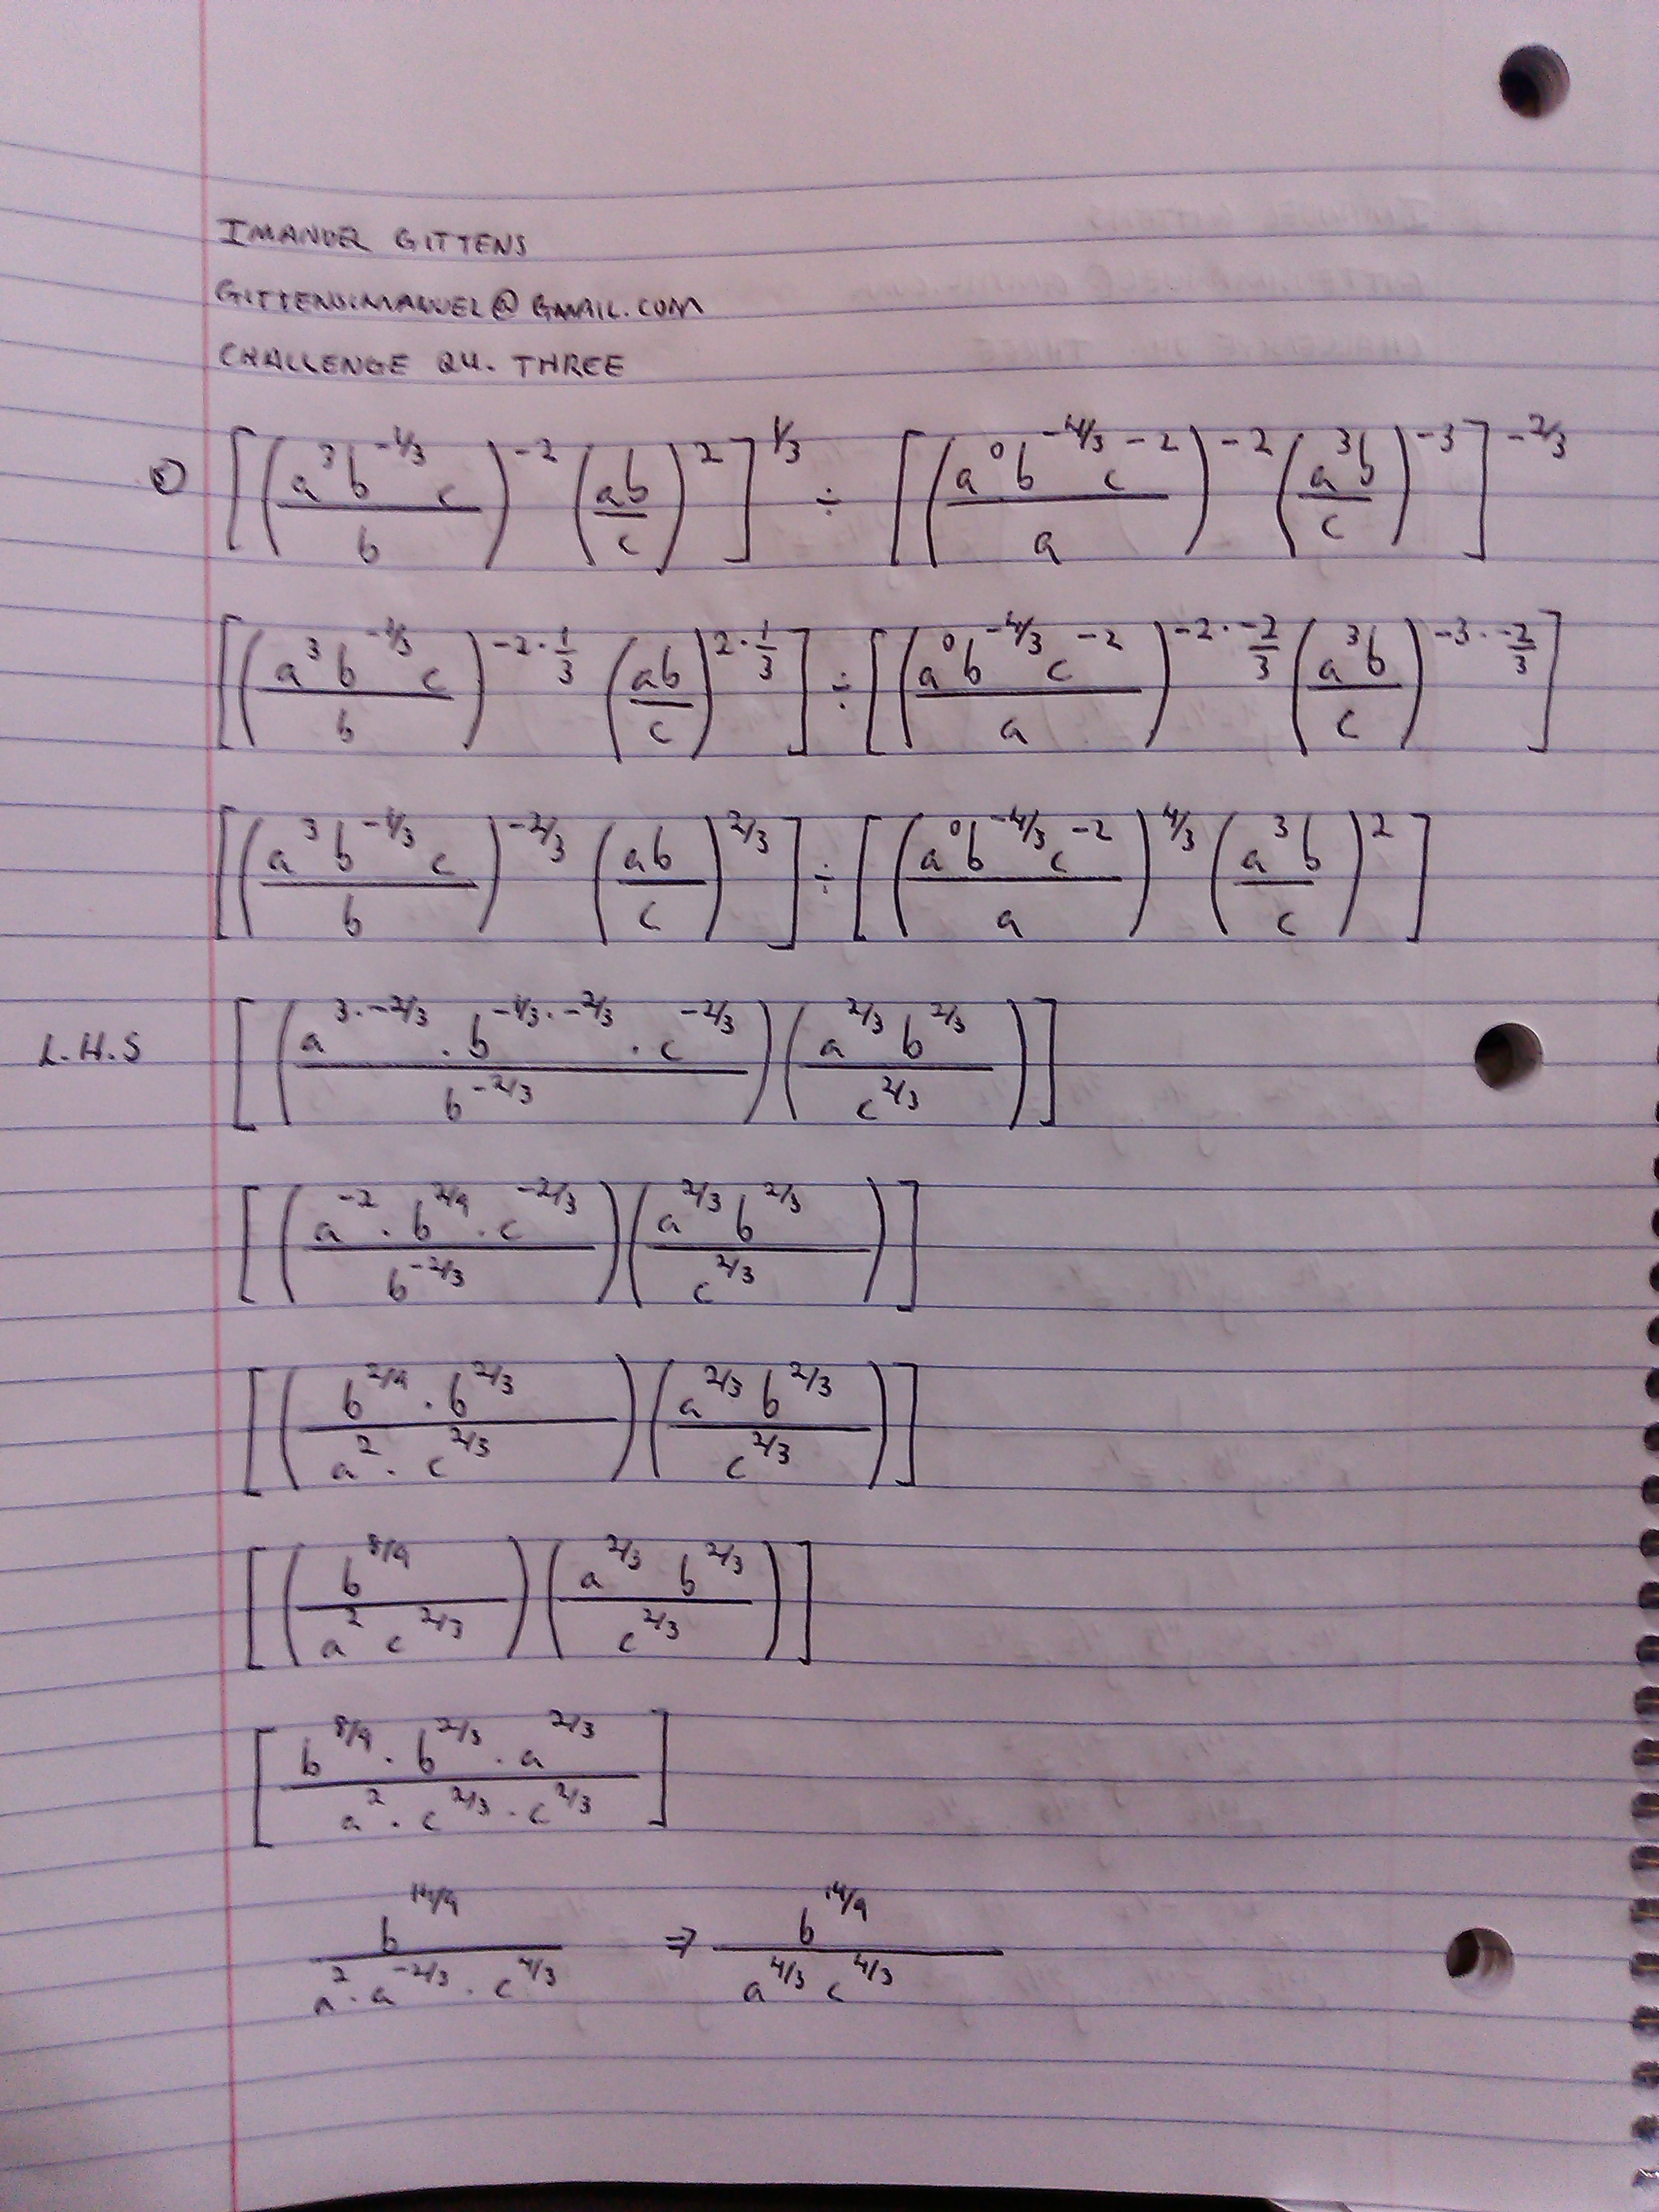 IMANUEL GITTENS
GITTENSIMANUEL@GMAIL.COM
CHALLENGE 24. THREE
[(a^3 b^-1/3 c / b)^-2 (ab / c)^2]^1/3 ÷ [(a^0 b^-4/3 c^-2 / a)^-2 (a^3 b / c)^-3]^-2/3
[(a^3 b^-1/3 c / b)^-2·1/3 (ab / c)^2·1/3] ÷ [(a^0 b^-4/3 c^-2 / a)^-2·-2/3 (a^3 b / c)^-3·-2/3]
[(a^3 b^-1/3 c / b)^-2/3 (ab / c)^2/3] ÷ [(a^0 b^-4/3 c^-2 / a)^4/3 (a^3 b / c)^2]
L.H.S [(a^3·-2/3 · b^-1/3·-2/3 · c^-2/3 / b^-2/3)(a^2/3 b^2/3 / c^2/3)]
[(a^-2 · b^2/9 · c^-2/3 / b^-2/3)(a^2/3 b^2/3 / c^2/3)]
[(b^2/9 · b^2/3 / a^2 · c^2/3)(a^2/3 b^2/3 / c^2/3)]
[(b^8/9 / a^2 c^2/3)(a^2/3 b^2/3 / c^2/3)]
[b^8/9 · b^2/3 · a^2/3 / a^2 · c^2/3 · c^2/3]
b^14/9 / a^2 · a^-2/3 · c^4/3 ⇒ b^14/9 / a^4/3 c^4/3